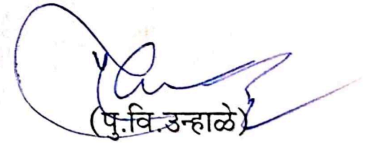 (पु.वि.उन्हाळे)